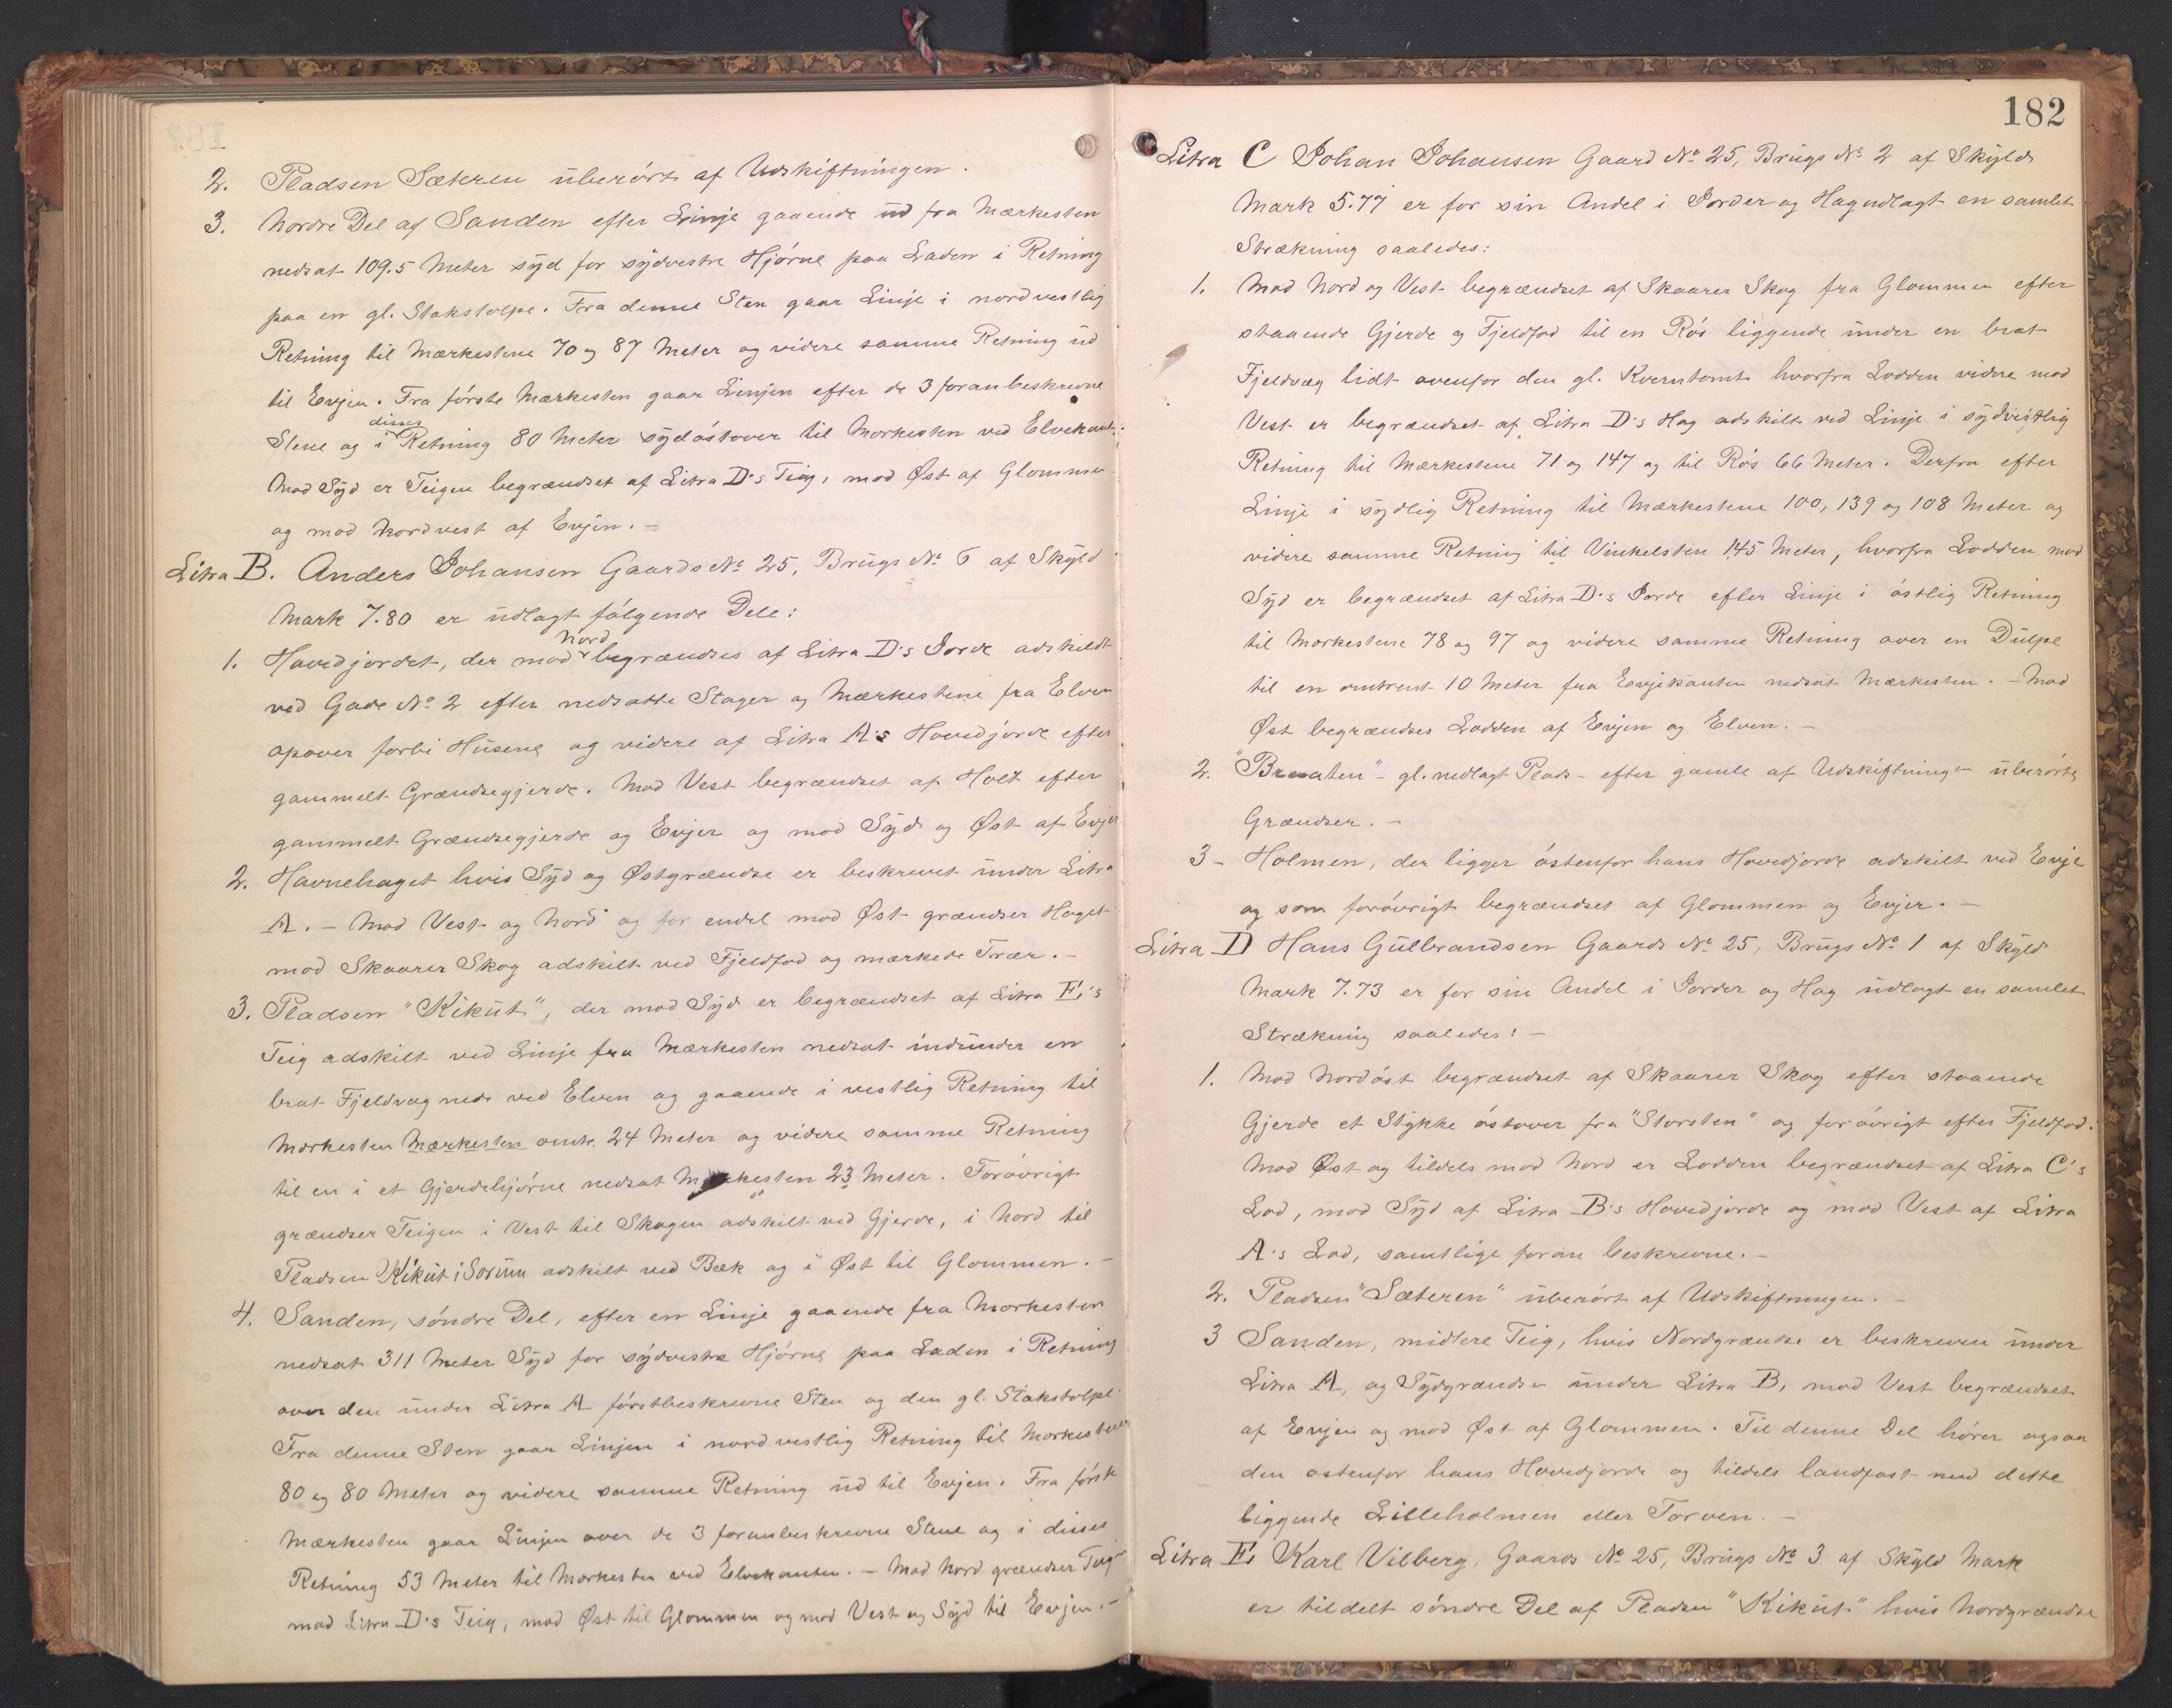 2. Pladsen Sæteren uberørt af Udskiftningen.
3. Nordre Del af Sanden efter Linje gaaende ud fra Mærkesten
nedsat 109.5 Meter syd for sydvestre Hjørne paa Laden i Retning
paa en gl. Stakstolpe. Fra denne Sten gaar Linje i nordvestlig
Retning til Mærkestene 70 og 87 Meter og videre samme Retning ud
til Evjen. Fra første Mærkesten gaar Linjen efter de 3 foranbeskrevne
Stene og i disses Retning 80 Meter sydøstover til Mærkesten ved Elvekant.
Mod Syd er Teigen begrændset af Litra D's Teig, mod Øst af Glommen
og mod Nordvest af Evjen. –
Litra B. Anders Johansen Gaards No 25, Brugs No 6 af Skyld
Mark 7.80 er udlagt følgende Dele:
1. Hovedjordet, der mod Nord begrændses af Litra D's Jorde adskildt
ved Gade No 2 efter nedsatte Stager og Mærkestene fra Elven
opover forbi Husene og videre af Litra A's Hovedjorde efter
gammelt Grændsegjerde. Mod Vest begrændset af Holt efter
gammelt Grændsegjerde og Evjer og mod Syd og Øst af Evjer
2. Havnehaget hvis Syd og Østgrændse er beskrevet under Litra
A. – Mod Vest og Nord og for endel mod Øst grændser Haget
mod Skaarer Skog adskilt ved Fjeldfod og mærkede Trær. –
3. Pladsen "Kikut", der mod Syd er begrændset af Litra E's
Teig adskilt ved Linje fra Mærkesten nedsat indunder en
brat Fjeldvæg nede ved Elven og gaaende i vestlig Retning til
Mærkesten Mærkesten omtr. 24 Meter og videre samme Retning
til en i et Gjerdehjørne nedsat Mærkesten 23 Meter. Forøvrigt
grændser Teigen i Vest til Skogen adskilt ved Gjerde, i Nord til
Pladsen Kikut i Sørum adskilt ved Bæk og i Øst til Glommen. –
4. Sanden, søndre Del, efter en Linje gaaende fra Mærkesten
nedsat 311 Meter Syd for sydvestre Hjørne paa Laden i Retning
over den under Litra A førstbeskrevne Sten og den gl. Stakstolpe
Fra denne Sten gaar Linjen i nordvestlig Retning til Mærkestene
80 og 80 Meter og videre samme Retning ud til Evjen. Fra første
Mærkesten gaar Linjen over de 3 foranbeskrevne Stene og i disses
Retning 53 Meter til Mærkesten ved Elvekanten. – Mod Nord grændser Teig
mod Litra D's Teig, mod Øst til Glommen og mod Vest og Syd til Evjen. –
182
Litra C Johan Johansen Gaard No 25, Brugs No 2 af Skyld
Mark 5.77 er for sin Andel i Jorder og Hag udlagt en samlet
Strækning saaledes:
1. Mod Nord og Vest begrændset af Skaarer Skog fra Glommen efter
staaende Gjerde og Fjeldfod til en Røs liggende under en brat
Fjeldvæg lidt ovenfor den gl. Kverntomt hvorfra Lodden videre mod
Vest er begrændset af Litra D's Hag adskilt ved Linje i sydvestlig
Retning til Mærkestene 71 og 147 og til Røs 66 Meter. Derfra efter
Linje i sydlig Retning til Mærkestene 100, 139 og 108 Meter og
videre samme Retning til Vinkelsten 145 Meter, hvorfra Lodden mod
Syd er begrændset af Litra D's Jorde efter Linje i østlig Retning
til Mærkestene 78 og 97 og videre samme Retning over en Dulpe
til en omtrent 10 Meter fra Evjekanten nedsat Mærkesten. – Mod
Øst begrændses Lodden af Evjen og Elven. –
2. "Braaten" – gl. nedlagt Plads – efter gamle af Udskiftningen uberørte
Grændser. –
3 – Holmen, der ligger østenfor hans Hovedjorde adskilt ved Evje
og som forøvrigt begrændset af Glommen og Evjer. –
Litra D Hans Gulbrandsen Gaards No 25, Brugs No 1 af Skyld
Mark 7.73 er for sin Andel i Jorder og Hag udlagt en samlet
Strækning saaledes: –
1. Mod Nordøst begrændset af Skaarer Skog efter staaende
Gjerde et Stykke østover fra "Storsten" og forøvrigt efter Fjeldfod.
Mod Øst og tildels mod Nord er Lodden begrændset af Litra C's
Lod, mod Syd af Litra B's Hovedjorde og mod Vest af Litra
A's Lod, samtlige foran beskrevne. –
2. Pladsen "Sæteren" uberørt af Udskiftningen. –
3 Sanden, midtere Teig, hvis Nordgrændse er beskreven under
Litra A, og Sydgrændsen under Litra B, mod Vest begrændset
af Evjen og mod Øst af Glommen. Til denne Del hører ogsaa
den østenfor hans Hovedjorde og tildels landfast med dette
liggende Lilleholmen eller Torven. –
Litra E, Karl Vilberg, Gaards No 25, Brugs No 3 af Skyld Mark
er tildelt søndre Del af Pladsen "Kikut" hvis Nordgrændse